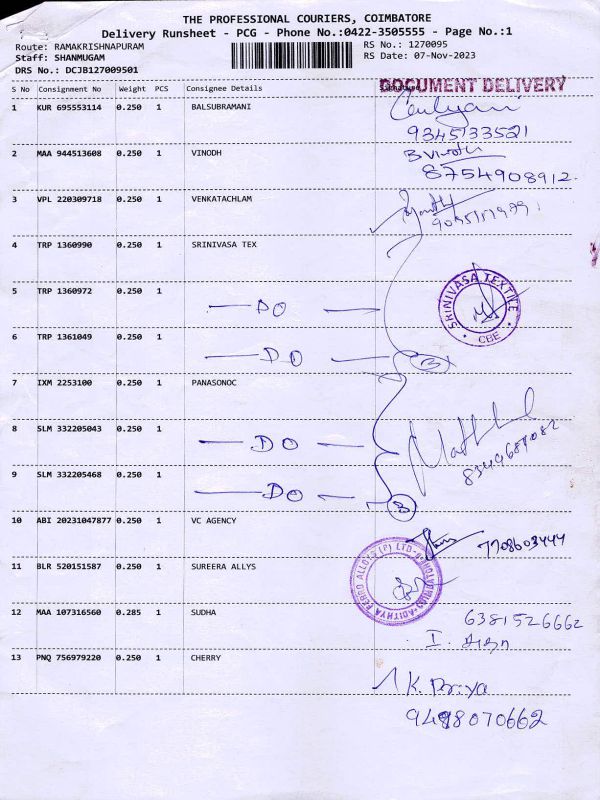 THE PROFESSIONAL COURIERS, COIMBATORE
Delivery Runsheet - PCG - Phone No.:0422-3505555 - Page No.:1
Route: RAMAKRISHNAPURAM
RS No.: 1270095
Staff: SHANMUGAM
RS Date: 07-Nov-2023
DRS No.: DCJB127009501
S No Consignment No Weight PCS Consignee Details
DOCUMENT DELIVERY
1 KUR 695553114 0.250 1 BALSUBRAMANI
9345133521
2 MAA 944513608 0.250 1 VINODH B Vinoth
8754908912.
3 VPL 220309718 0.250 1 VENKATACHLAM
4 TRP 1360990 0.250 1 SRINIVASA TEX
SRINIVASA TEXTILE CBE
5 TRP 1360972 0.250 1 — DO —
6 TRP 1361049 0.250 1 — DO — 3
7 IXM 2253100 0.250 1 PANASONOC
8 SLM 332205043 0.250 1 — DO —
9 SLM 332205468 0.250 1 — DO — 3
10 ABI 20231047877 0.250 1 VC AGENCY 7708603444
11 BLR 520151587 0.250 1 SUREERA ALLYS
ADITHYA FERRO ALLOYS (P) LTD
12 MAA 107316560 0.285 1 SUDHA 6381526662
13 PNQ 756979220 0.250 1 CHERRY K. Priya